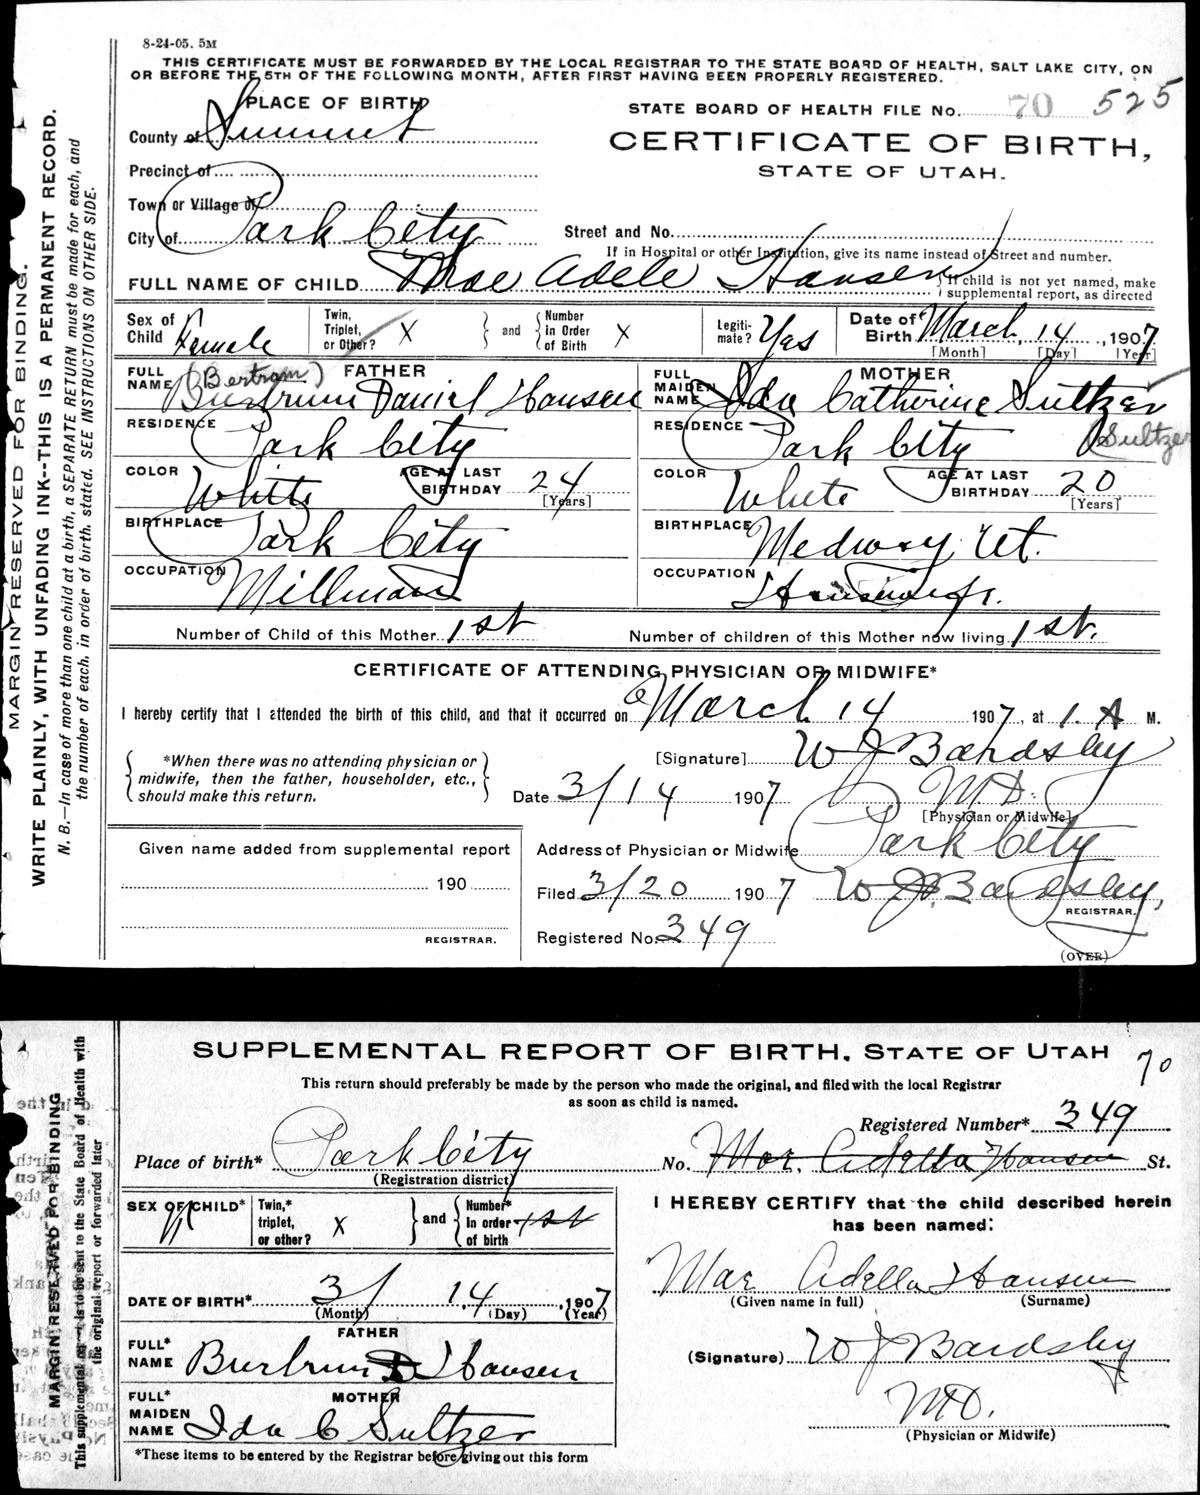 8-24-05. 5M
THIS CERTIFICATE MUST BE FORWARDED BY THE LOCAL REGISTRAR TO THE STATE BOARD OF HEALTH, SALT LAKE CITY, ON
OR BEFORE THE 5TH OF THE FOLLOWING MONTH, AFTER FIRST HAVING BEEN PROPERLY REGISTERED.
PLACE OF BIRTH
STATE BOARD OF HEALTH FILE No. 70 525
County of Summit
CERTIFICATE OF BIRTH,
STATE OF UTAH.
Precinct of
Town or Village of
City of Park City
Street and No.
If in Hospital or other Institution, give its name instead of Street and number.
FULL NAME OF CHILD Mae Adele Hansen
If child is not yet named, make
supplemental report, as directed
Sex of Child Female
Twin, Triplet, or Other? X
and
Number in Order of Birth X
Legitimate? Yes
Date of Birth March, 14, 1907
[Month] [Day] [Year]
FATHER
FULL NAME (Bertram) Burtrum Daniel Hansen
MOTHER
FULL MAIDEN NAME Ida Catherine Sultzer
(Sultzer
RESIDENCE Park City
RESIDENCE Park City
COLOR White AGE AT LAST BIRTHDAY 24 [Years]
COLOR White AGE AT LAST BIRTHDAY 20 [Years]
BIRTHPLACE Park City
BIRTHPLACE Medway, Ut.
OCCUPATION Millman
OCCUPATION
Number of Child of this Mother 1st
Number of children of this Mother now living 1st.
CERTIFICATE OF ATTENDING PHYSICIAN OR MIDWIFE*
I hereby certify that I attended the birth of this child, and that it occurred on March 14 1907, at 1. A M.
*When there was no attending physician or
midwife, then the father, householder, etc.,
should make this return.
[Signature] W J Bardsley
Date 3/14 1907 M D.
[Physician or Midwife]
Address of Physician or Midwife Park City
Given name added from supplemental report
190
REGISTRAR.
Filed 3/20 1907 W J Bardsley,
REGISTRAR.
Registered No. 349
(OVER)
MARGIN RESERVED FOR BINDING.
WRITE PLAINLY, WITH UNFADING INK--THIS IS A PERMANENT RECORD.
N. B.—In case of more than one child at a birth, a SEPARATE RETURN must be made for each, and
the number of each, in order of birth, stated. SEE INSTRUCTIONS ON OTHER SIDE.
SUPPLEMENTAL REPORT OF BIRTH, STATE OF UTAH
70
This return should preferably be made by the person who made the original, and filed with the local Registrar
as soon as child is named.
Registered Number* 349
Place of birth* Park City
No. Mae Adella Hansen St.
(Registration district)
SEX OF CHILD*
Twin,* triplet, or other? X
and
Number* in order of birth 1st
I HEREBY CERTIFY that the child described herein
has been named:
Mae Adella Hansen
(Given name in full) (Surname)
DATE OF BIRTH* 3/ 14 1907
(Month) (Day) (Year)
FATHER
FULL* NAME Burtrum D Hansen
(Signature) W J Bardsley
MD.
(Physician or Midwife)
MOTHER
FULL* MAIDEN NAME Ida C Sultzer
*These items to be entered by the Registrar before giving out this form
MARGIN RESERVED FOR BINDING
This supplemental is to be sent to the State Board of Health with
the original report or forwarded later